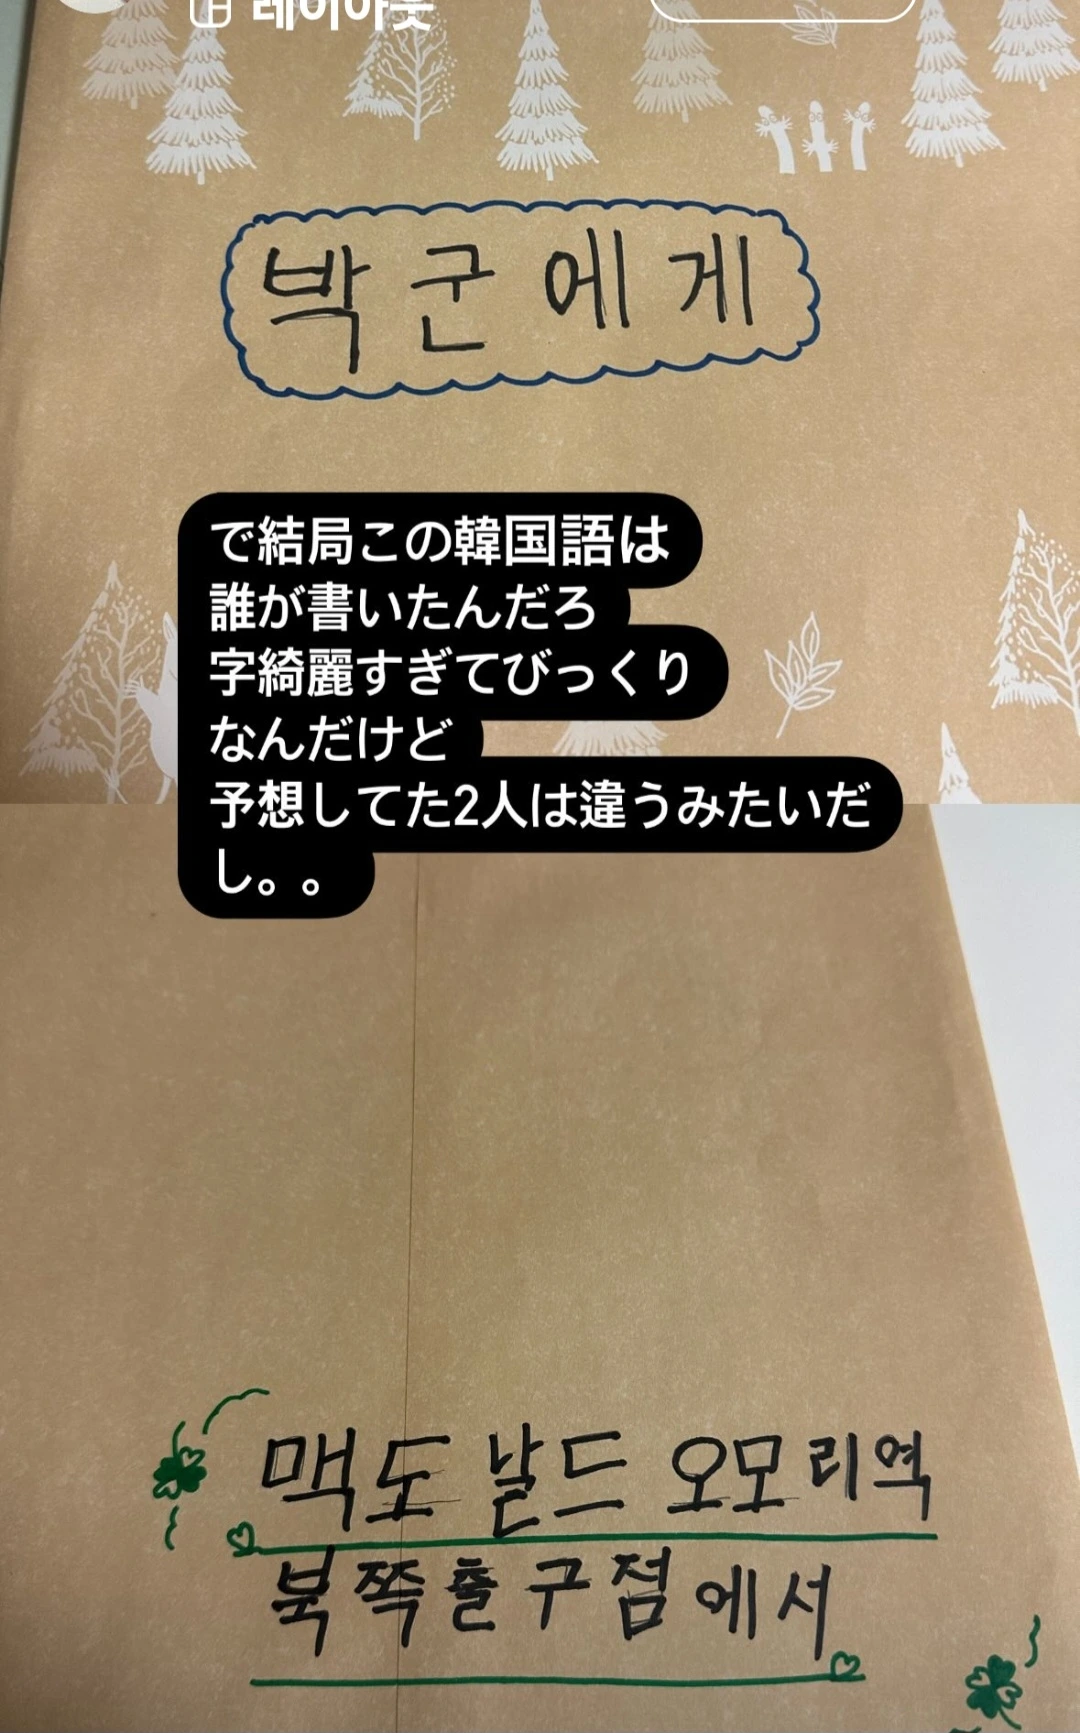 레이아웃
박군에게
で結局この韓国語は
誰が書いたんだろ
字綺麗すぎてびっくり
なんだけど
予想してた2人は違うみたいだ
し。。
맥도날드 오모리역
북쪽출구점에서